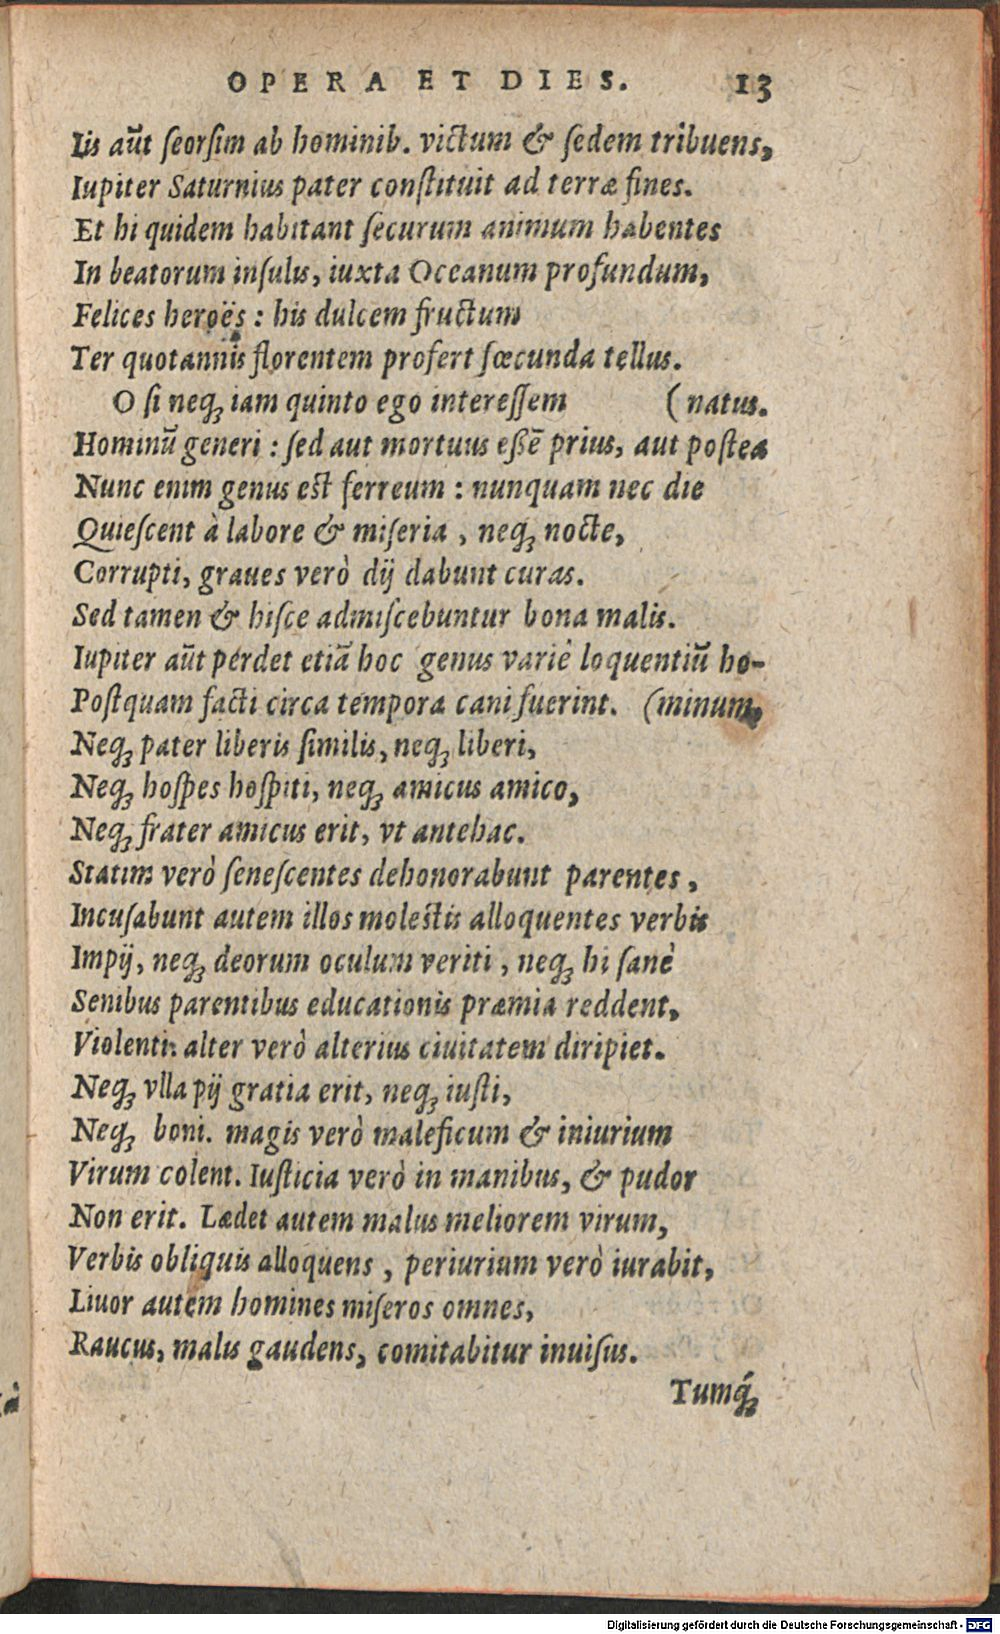 OPERA ET DIES. 13
Iis aūt ſeorſim ab hominib. victum & ſedem tribuens,
Iupiter Saturnius pater conſtituit ad terræ fines.
Et hi quidem habitant ſecurum animum habentes
In beatorum inſulis, iuxta Oceanum profundum,
Felices heroës : his dulcem fructum
Ter quotannis florentem profert fœcunda tellus.
O ſi neq́ꝫ iam quinto ego intereſſem (natus.
Hominū generi : ſed aut mortuus eßē prius, aut poſtea
Nunc enim genus est ferreum : nunquam nec die
Quieſcent à labore & miſeria , neq́ꝫ nocte,
Corrupti, graues verò dij dabunt curas.
Sed tamen & hiſce admiſcebuntur bona malis.
Iupiter aūt perdet etiā hoc genus variè loquentiū ho-
Poſtquam facti circa tempora cani fuerint. (minum,
Neq́ꝫ pater liberis ſimilis, neq́ꝫ liberi,
Neq́ꝫ hoſpes hoſpiti, neq́ꝫ amicus amico,
Neq́ꝫ frater amicus erit, vt antehac.
Statim verò ſeneſcentes dehonorabunt parentes ,
Incuſabunt autem illos molestis alloquentes verbis
Impij, neq́ꝫ deorum oculum veriti , neq́ꝫ hi ſanè
Senibus parentibus educationis præmia reddent,
Violenti: alter verò alterius ciuitatem diripiet.
Neq́ꝫ vlla pij gratia erit, neq́ꝫ iuſti,
Neq́ꝫ boni. magis verò maleficum & iniurium
Virum colent. Iuſticia verò in manibus, & pudor
Non erit. Lædet autem malus meliorem virum,
Verbis obliquis alloquens , periurium verò iurabit,
Liuor autem homines miſeros omnes,
Raucus, malis gaudens, comitabitur inuiſus.
Tumq́ꝫ
Digitalisierung gefördert durch die Deutsche Forschungsgemeinschaft - DFG